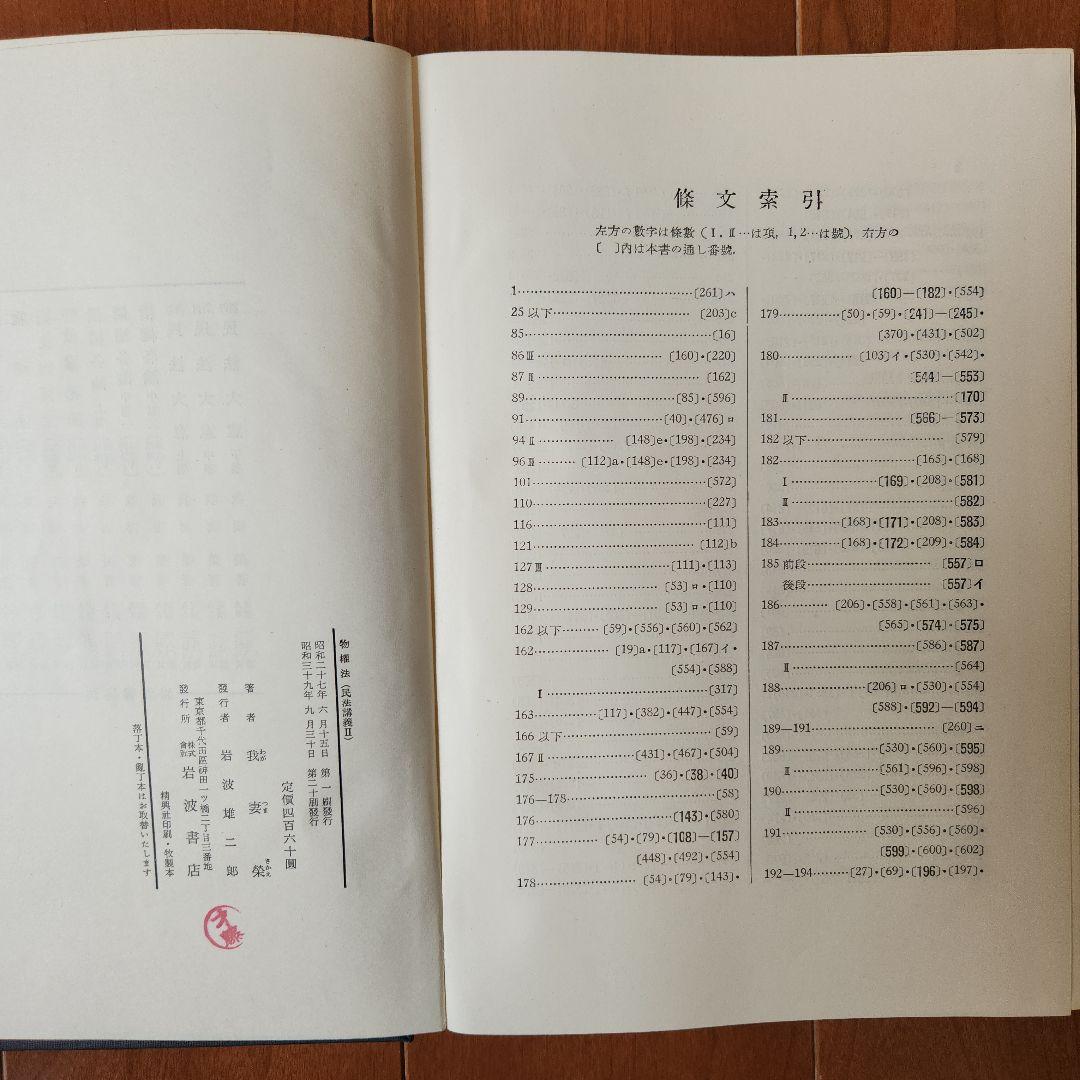 物權法（民法講義Ⅱ）
昭和二十七年六月十五日　第一刷發行
昭和三十九年九月三十日　第二十刷發行
定價四百六十圓
著者　我妻榮
わが　つま　さかえ
發行者　岩波雄二郎
東京都千代田區神田一ツ橋二丁目三番地
發行所　株式會社　岩波書店
精興社印刷・牧製本
落丁本・亂丁本はお取替いたします
條文索引
左方の數字は條數（Ⅰ，Ⅱ…は項，1, 2…は號），右方の
〔　〕內は本書の通し番號．
1……〔261〕ハ
25以下……〔203〕c
85……〔16〕
86Ⅲ……〔160〕・〔220〕
87Ⅱ……〔162〕
89……〔85〕・〔596〕
91……〔40〕・〔476〕ロ
94Ⅱ……〔148〕e・〔198〕・〔234〕
96Ⅲ……〔112〕a・〔148〕e・〔198〕・〔234〕
101……〔572〕
110……〔227〕
116……〔111〕
121……〔112〕b
127Ⅲ……〔111〕・〔113〕
128……〔53〕ロ・〔110〕
129……〔53〕ロ・〔110〕
162以下……〔59〕・〔556〕・〔560〕・〔562〕
162……〔19〕a・〔117〕・〔167〕イ・
〔554〕・〔588〕
Ⅰ……〔317〕
163……〔117〕・〔382〕・〔447〕・〔554〕
166以下……〔59〕
167Ⅱ……〔431〕・〔467〕・〔504〕
175……〔36〕・〔38〕・〔40〕
176—178……〔58〕
176……〔143〕・〔580〕
177……〔54〕・〔79〕・〔108〕—〔157〕
〔448〕・〔492〕・〔554〕
178……〔54〕・〔79〕・〔143〕・
〔160〕—〔182〕・〔554〕
179……〔50〕・〔59〕・〔241〕—〔245〕・
〔370〕・〔431〕・〔502〕
180……〔103〕イ・〔530〕・〔542〕・
〔544〕—〔553〕
Ⅱ……〔170〕
181……〔566〕—〔573〕
182以下……〔579〕
182……〔165〕・〔168〕
Ⅰ……〔169〕・〔208〕・〔581〕
Ⅱ……〔582〕
183……〔168〕・〔171〕・〔208〕・〔583〕
184……〔168〕・〔172〕・〔209〕・〔584〕
185前段……〔557〕ロ
後段……〔557〕イ
186……〔206〕・〔558〕・〔561〕・〔563〕・
〔565〕・〔574〕・〔575〕
187……〔586〕・〔587〕
Ⅱ……〔564〕
188……〔206〕ロ・〔530〕・〔554〕
〔588〕・〔592〕—〔594〕
189—191……〔260〕ニ
189……〔530〕・〔560〕・〔595〕
Ⅱ……〔561〕・〔596〕・〔598〕
190……〔530〕・〔560〕・〔598〕
Ⅱ……〔596〕
191……〔530〕・〔556〕・〔560〕・
〔599〕・〔600〕・〔602〕
192—194……〔27〕・〔69〕・〔196〕・〔197〕・